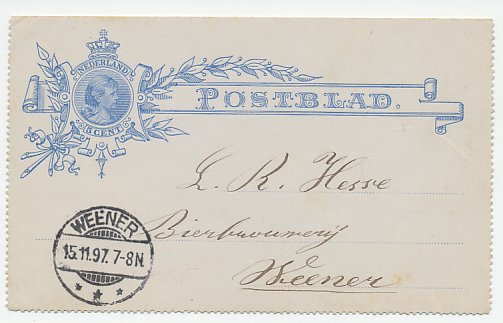 NEDERLAND
5 CENT
POSTBLAD.
L. R. Hesse
Bierbrouwerij
Weener
WEENER
15.11.97. 7-8N.